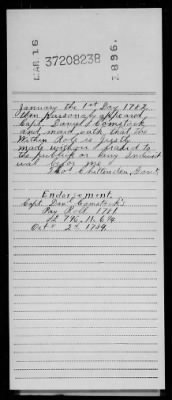 MAR 16
37208238
1896.
January the 1st Day 1782
then personaly appeared
Capt. Daniel Comstock
and maid oath that the
Within Role is justly
made without fraud to
the publick or Eny Individ
was before me
Thos Chittenden, Gov.
Endorsement.
Capt. Danl Comstock's
Pay Roll 1781
Octr 2d 1784.